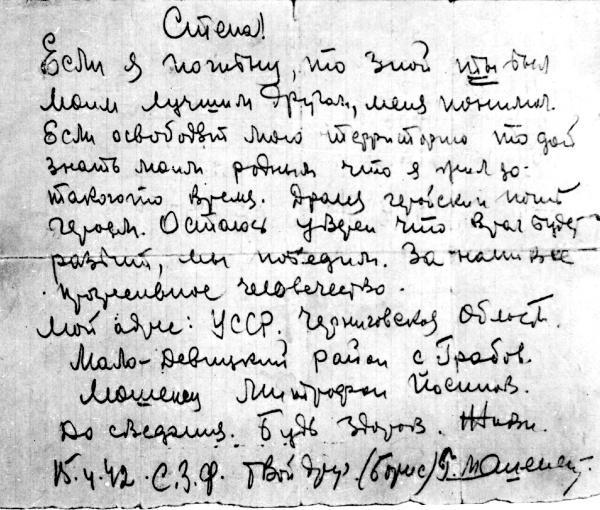 Степа!
Если я погибну, то знай ты был
моим лучшим другом, меня понимал.
Если освободят мою территорию то дай
знать моим родным что я жил до
такого то время. Дрался геройски и погиб
героем. Остаюсь уверен что враг будет
разбит, мы победим. За нами все
прогрессивное человечество.
Мой адрес: УССР. Черниговская област.
Мало-Девицкий район с Грабов.
Мошенец Митрофан Йосипов.
До сведания. Будь здоров. Живи.
15.4.42. С.З.Ф. Твой друг (Борис) Мошенец.